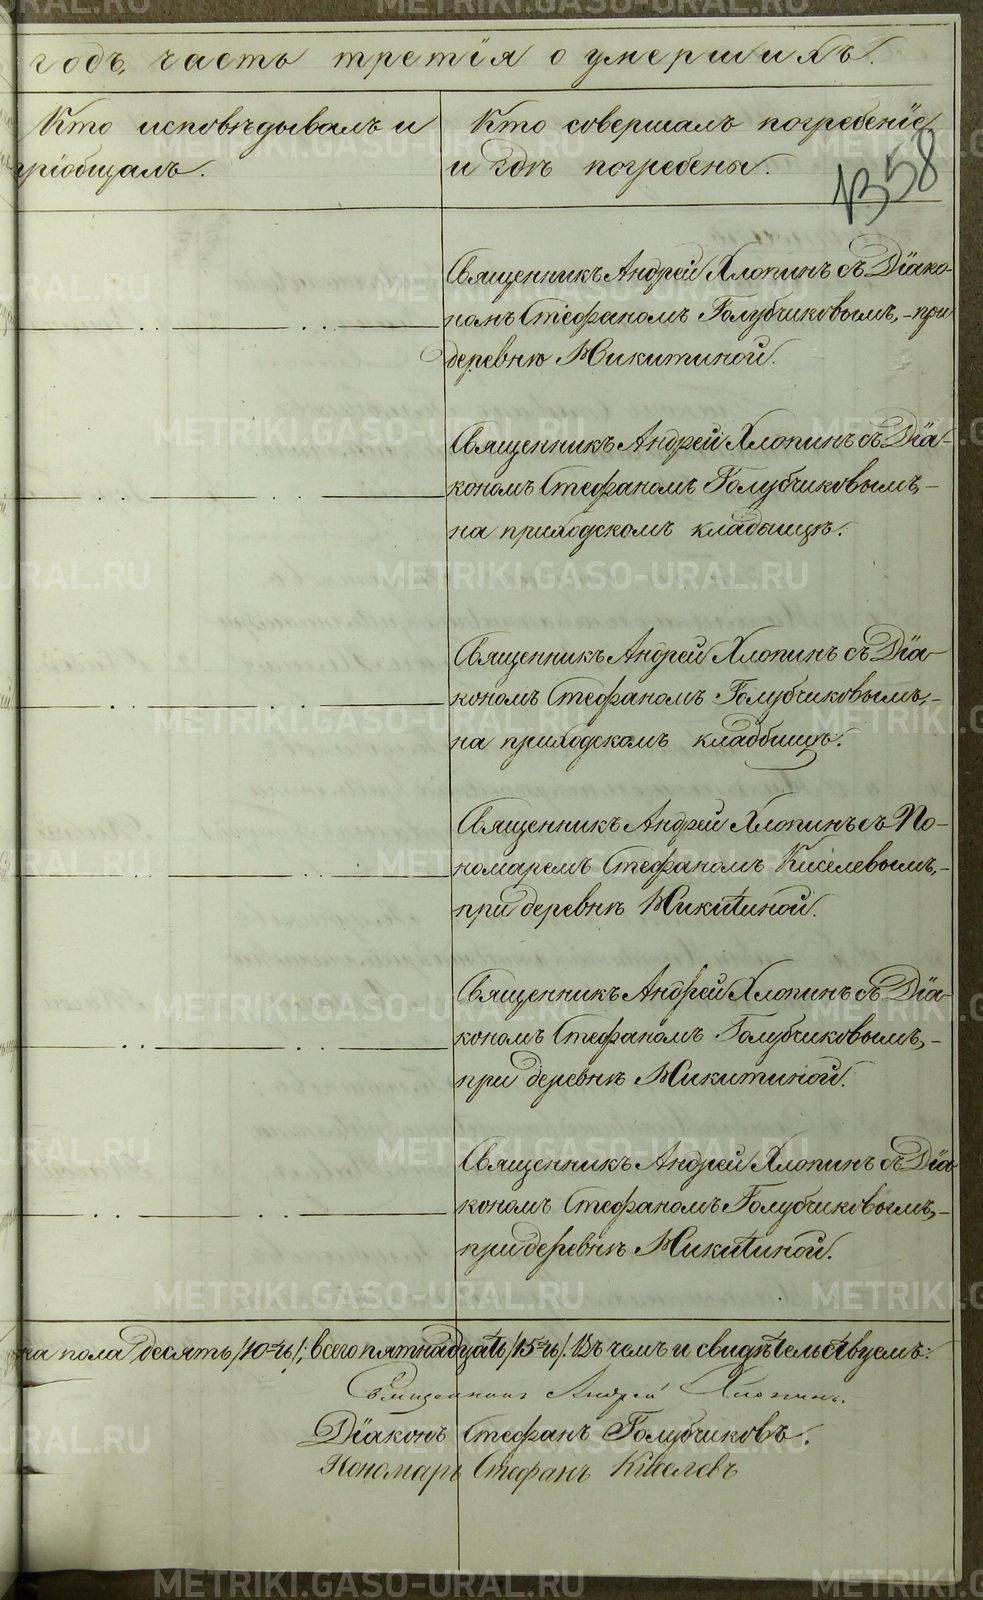 годъ, часть третія о умершихъ.
Кто исповѣдывалъ и
пріобщалъ.
Кто совершалъ погребеніе
и гдѣ погребены.
1358
Священникъ Андрей Хлопинъ съ Діако-
номъ Стефаномъ Голубчиковымъ, - при
деревнѣ Микитиной.
Священникъ Андрей Хлопинъ съ Діа-
кономъ Стефаномъ Голубчиковымъ, -
на приходскомъ кладбищѣ.
Священникъ Андрей Хлопинъ съ Діа-
кономъ Стефаномъ Голубчиковымъ, -
на приходскомъ кладбищѣ.
Священникъ Андрей Хлопинъ съ По-
номаремъ Стефаномъ Киселевымъ, -
при деревнѣ Микитиной.
Священникъ Андрей Хлопинъ съ Діа-
кономъ Стефаномъ Голубчиковымъ, -
при деревнѣ Микитиной.
Священникъ Андрей Хлопинъ съ Діа-
кономъ Стефаномъ Голубчиковымъ, -
при деревнѣ Микитиной.
ка пола десять /10-ть/, всего пятнадцать /15-ть/. Въ чемъ и свидѣтельствуемъ:
Священникъ Андрей Хлопинъ.
Діаконъ Стефанъ Голубчиковъ.
Пономарь Стефанъ Киселевъ
METRIKI.GASO-URAL.RU